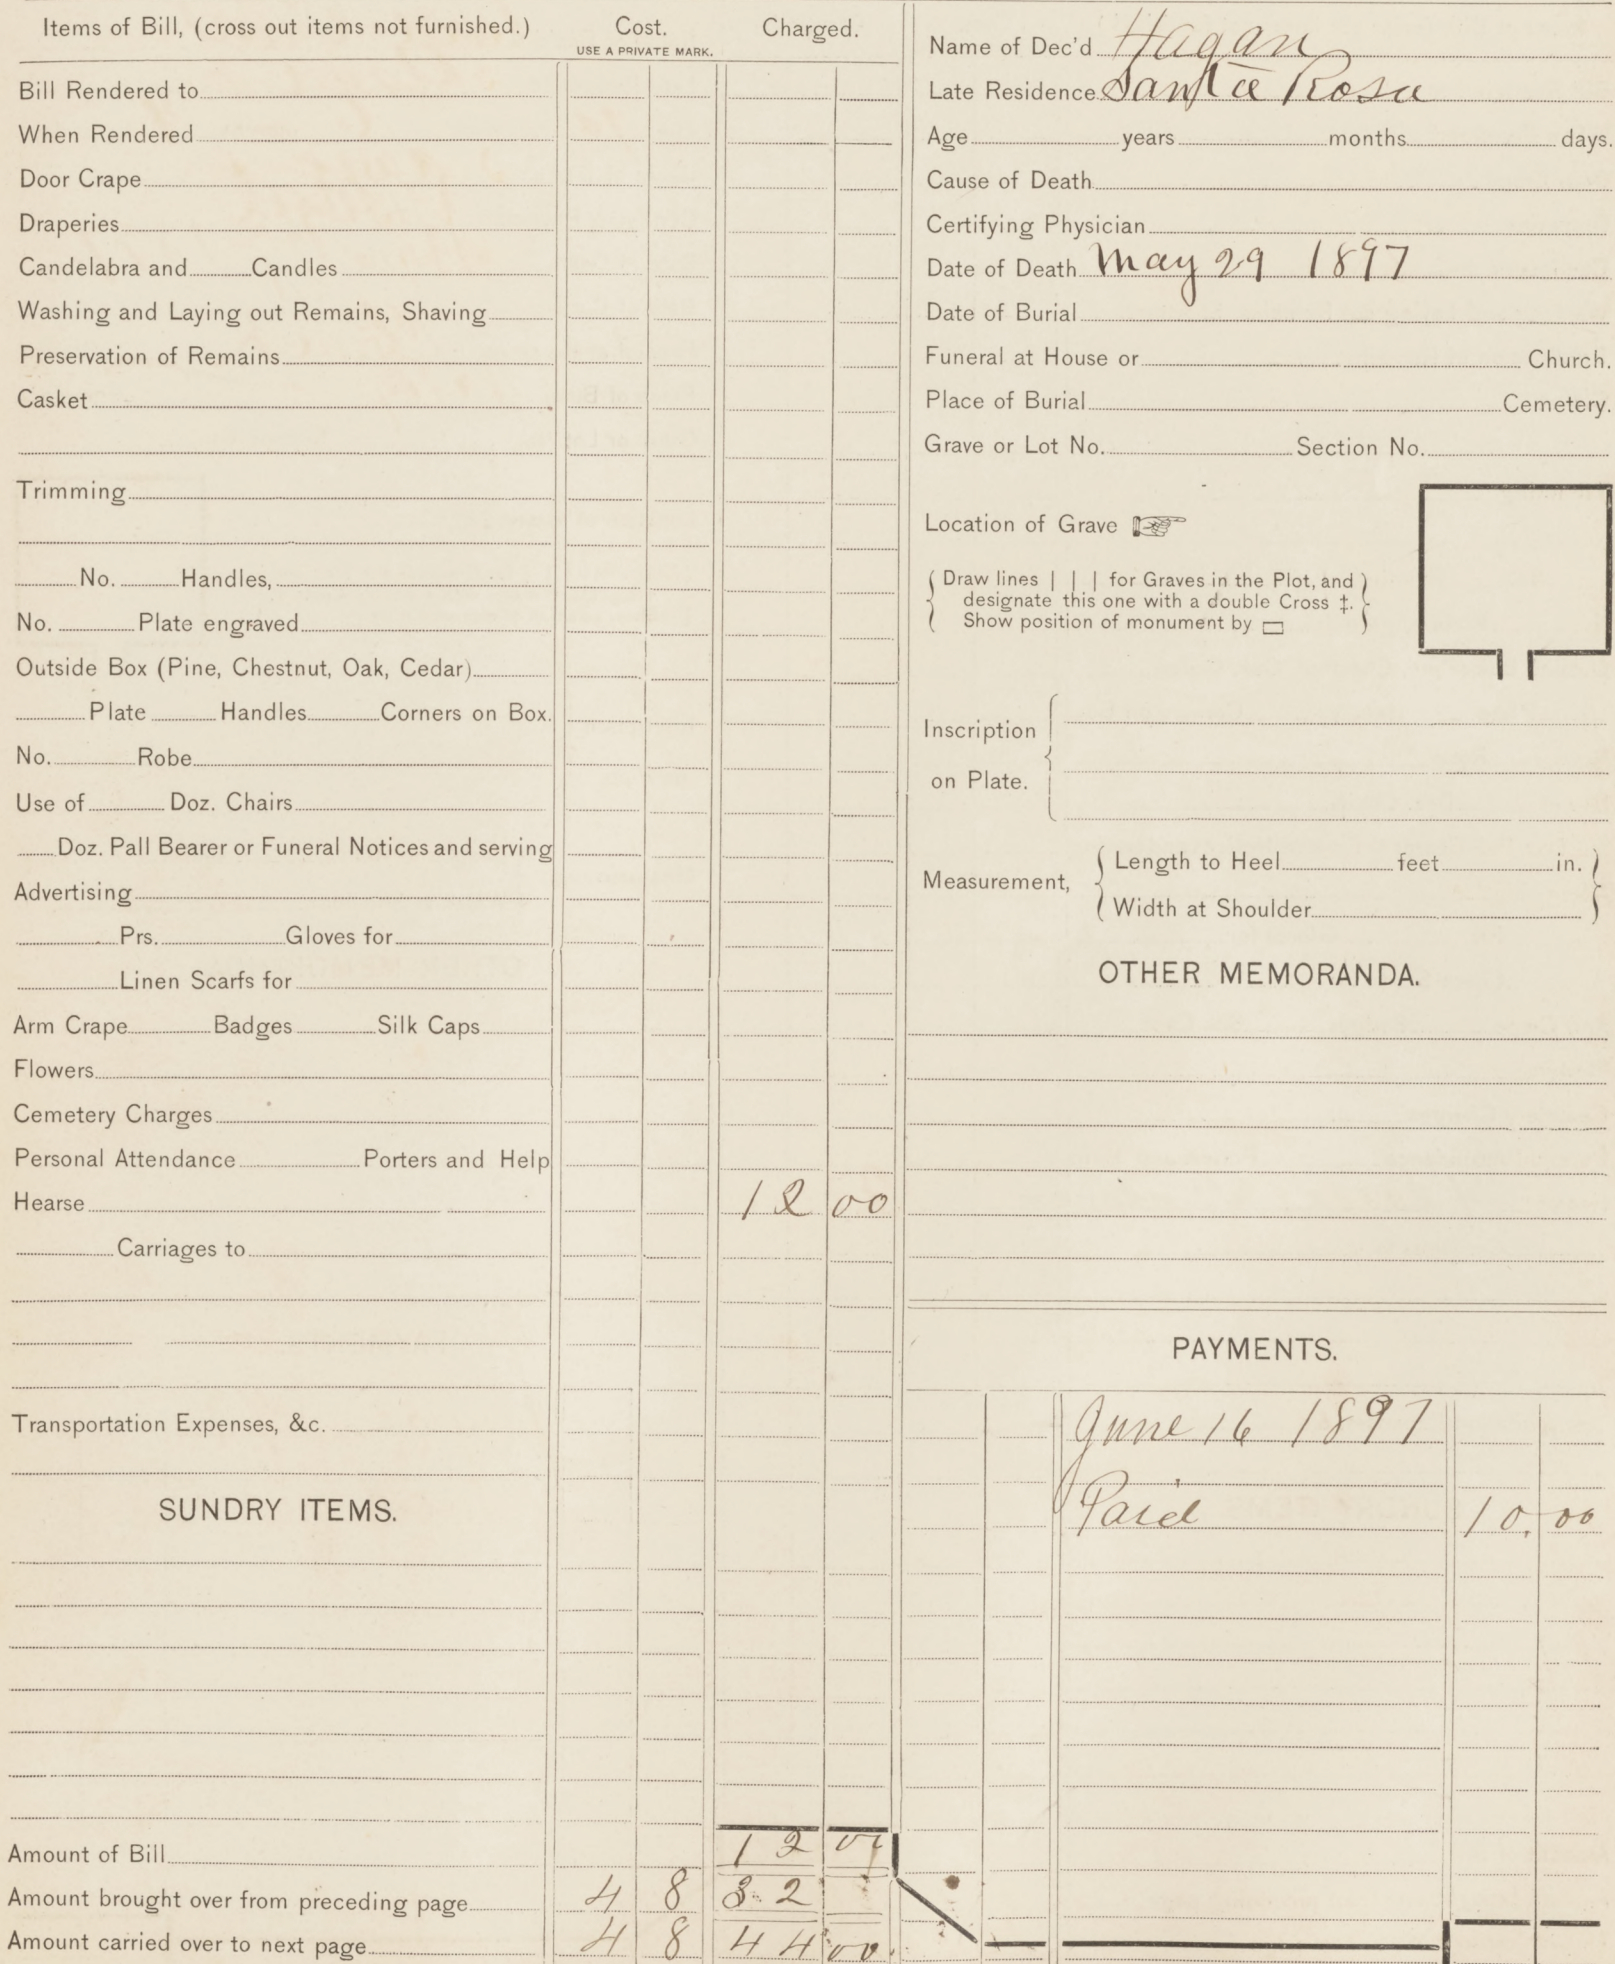 Items of Bill, (cross out items not furnished.) Cost. Charged.
USE A PRIVATE MARK.
Bill Rendered to
When Rendered
Door Crape
Draperies
Candelabra and Candles
Washing and Laying out Remains, Shaving
Preservation of Remains
Casket
Trimming
No. Handles,
No. Plate engraved
Outside Box (Pine, Chestnut, Oak, Cedar)
Plate Handles Corners on Box.
No. Robe
Use of Doz. Chairs
Doz. Pall Bearer or Funeral Notices and serving
Advertising
Prs. Gloves for
Linen Scarfs for
Arm Crape Badges Silk Caps
Flowers
Cemetery Charges
Personal Attendance Porters and Help
Hearse 12 00
Carriages to
Transportation Expenses, &c.
SUNDRY ITEMS.
Amount of Bill 12 00
Amount brought over from preceding page 4 8 32
Amount carried over to next page 4 8 44 00
Name of Dec'd Hagan
Late Residence Santa Rosa
Age years months days.
Cause of Death
Certifying Physician
Date of Death May 29 1897
Date of Burial
Funeral at House or Church.
Place of Burial Cemetery.
Grave or Lot No. Section No.
Location of Grave ☞
Draw lines | | | for Graves in the Plot, and
designate this one with a double Cross ‡.
Show position of monument by ▭
Inscription
on Plate.
Measurement,
Length to Heel feet in.
Width at Shoulder
OTHER MEMORANDA.
PAYMENTS.
June 16 1897
Paid 10.00